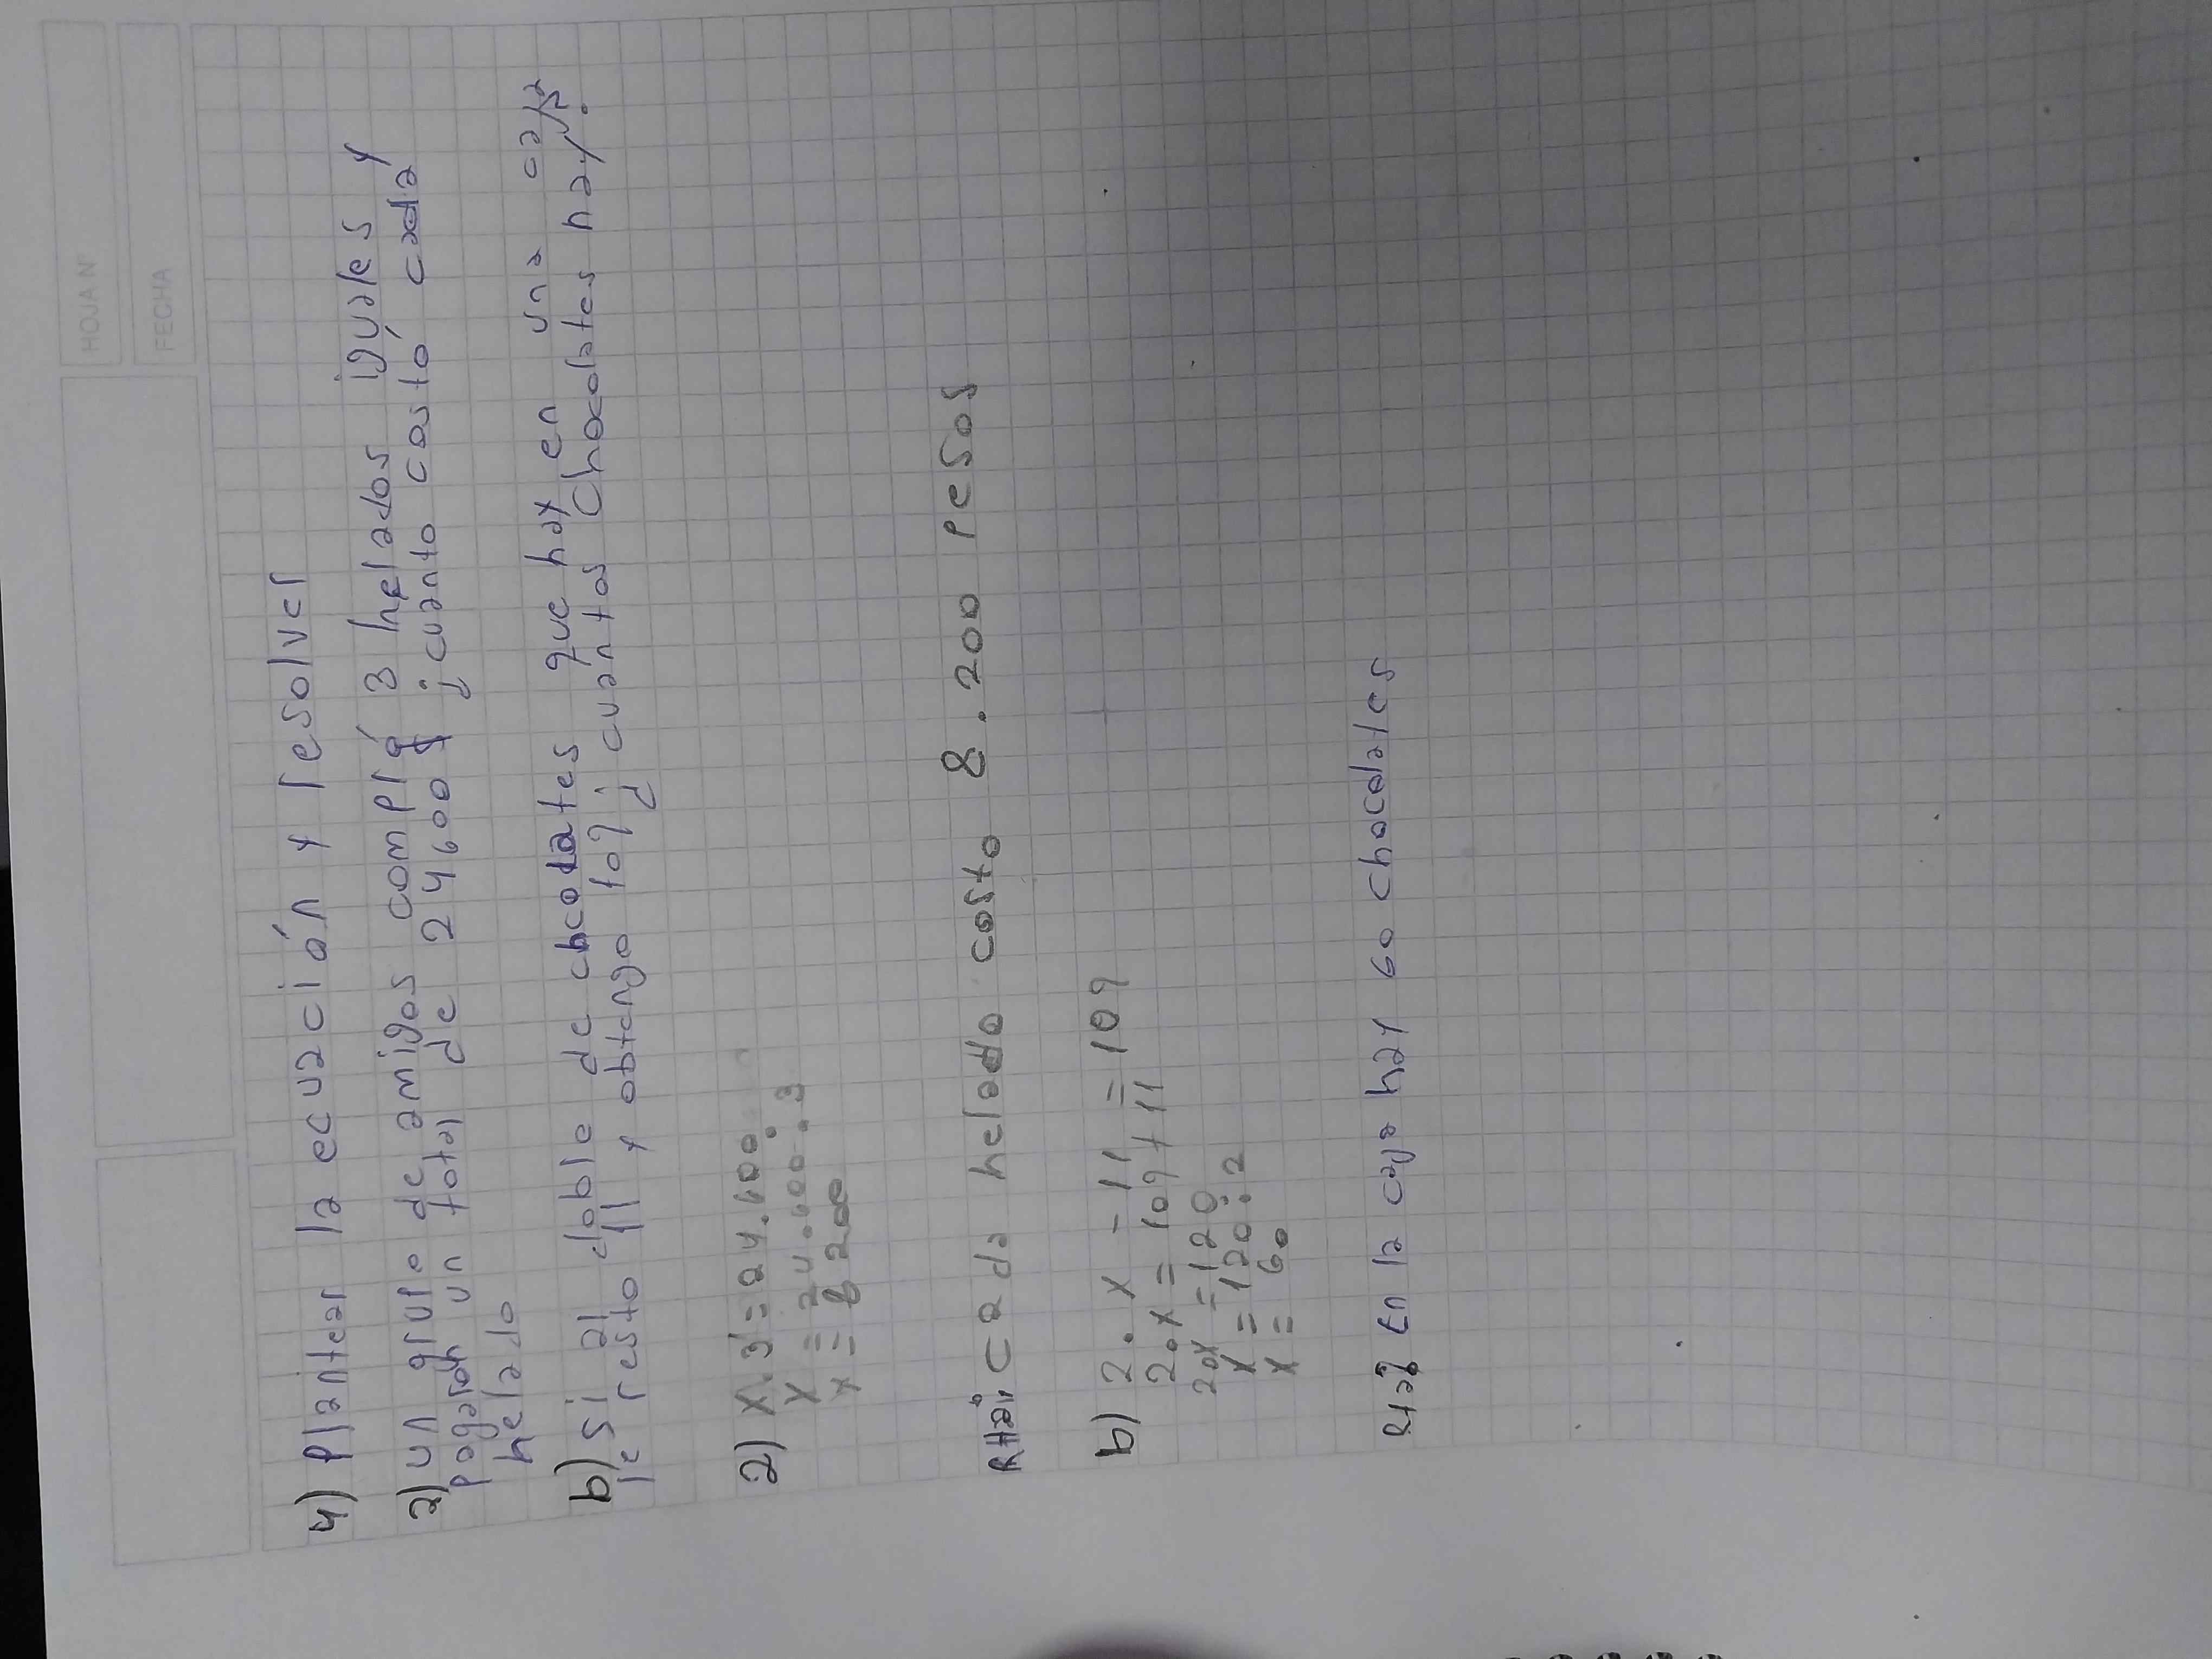 HOJA N°
FECHA
4) Plantear la ecuación y resolver
a) un grupo de amigos compró 3 helados iguales y
pagaron un total de 24600 $ ¿cuanto costó cada
helado
b) si al doble de chocolates que hay en una caja
le resto 11 y obtengo 109 ¿cuantos chocolates hay?
a) x.3 = 24.600
x = 24.600:3
x = 8200
Rta: Cada helado costo 8.200 pesos
b) 2.x - 11 = 109
2.x = 109 + 11
2.x = 120
x = 120:2
x = 60
Rta: En la caja hay 60 chocolates